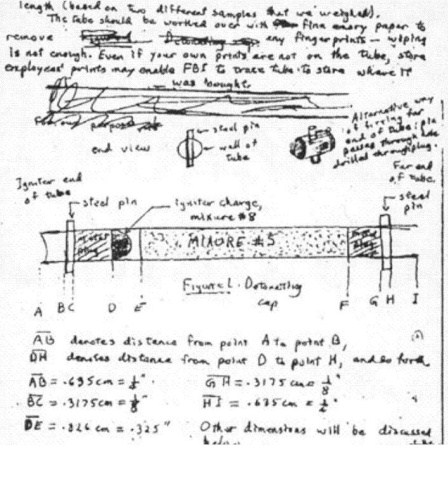 length (based on two different samples that we weighed).
The tube should be worked over with fine emery paper to
remove any fingerprints — wiping
is not enough. Even if your own prints are not on the tube, store
employees' prints may enable FBI to trace tube to store where it
was bought.
end view
steel pin
wall of
tube
Alternative way
of fixing far
end of tube: pin
passes through hole
drilled through plug.
Igniter end
of tube
steel pin
igniter charge,
mixture #8
Far end
of tube.
steel
pin
plug
MIXTURE #5
plug
A BC D E F G H I
Figure 1. Detonating
cap
AB denotes distance from point A to point B,
DH denotes distance from point D to point H, and so forth.
AB = .635 cm = ¼" GH = .3175 cm = ⅛"
BC = .3175 cm = ⅛" HI = .635 cm = ¼"
DE = .826 cm = .325" Other dimensions will be discussed